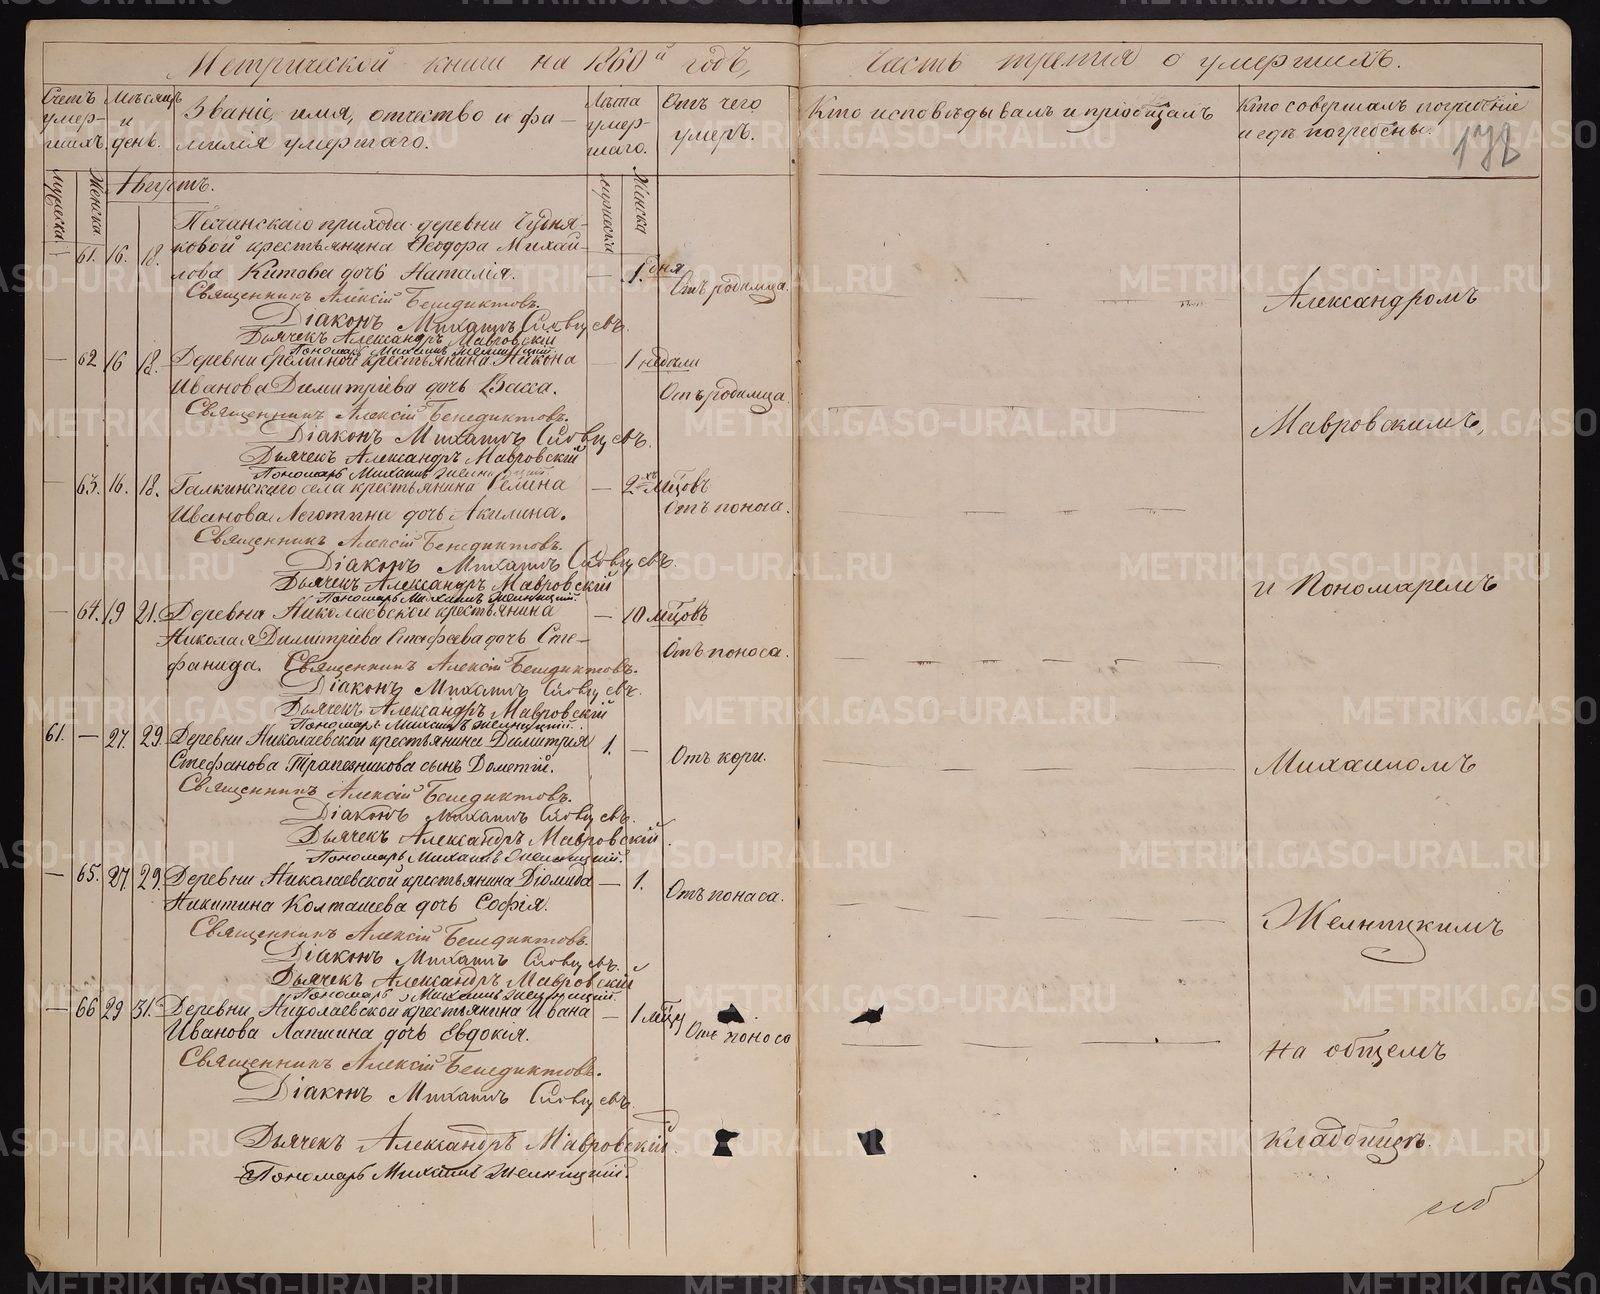 Метрической книги на 1860й годъ,
Часть третия о умершихъ.
Счетъ умер-шихъ.
Мѣсяцъ и день.
Званіе, имя, отчество и фа-
милія умершаго.
Лѣта умер-шаго.
Отъ чего умеръ.
Кто исповѣдывалъ и пріобщалъ
Кто совершалъ погребеніе
и гдѣ погребены.
мужеска
Женска
Августъ.
мужеска
Женска
Песчанскаго прихода деревни Чудня-
ковой крестьянина Ѳеодора Михай-
— 61. 16. 18. лова Китова дочь Наталія. — 1. дня
Отъ родимца.
Священникъ Алексій Бенедиктовъ.
Діаконъ Михаилъ Словцевъ.
Дьячекъ Александръ Мавровскій
Пономарь Михаилъ Желницкій.
— 62 16 18. Деревни крестьянина Никона — 1 недели
Иванова Димитріева дочь Васса. Отъ родимца.
Священникъ Алексій Бенедиктовъ.
Діаконъ Михаилъ Словцевъ.
Дьячекъ Александръ Мавровскій
Пономарь Михаилъ Желницкій
— 63. 16. 18. Галкинскаго села крестьянина — 2хъ мцовъ
Иванова Леготина дочь Акилина. Отъ поноса.
Священникъ Алексій Бенедиктовъ.
Діаконъ Михаилъ Словцевъ.
Дьячекъ Александръ Мавровскій
Пономарь Михаилъ Желницкій.
— 64. 19 21. Деревна Николаевской крестьянина — 10 мцовъ
Николая Димитріева дочь Сте-
фанида. Священникъ Алексій Бенедиктовъ. Отъ поноса.
Діаконъ Михаилъ Словцевъ.
Дьячекъ Александръ Мавровскій
Пономарь Михаилъ Желницкій.
61. — 27. 29. Деревни Николаевской крестьянина Димитрія 1. —
Стефанова Трапезникова сынъ Дометій. Отъ кори.
Священникъ Алексій Бенедиктовъ.
Діаконъ Михаилъ Словцевъ.
Дьячекъ Александръ Мавровскій.
Пономарь Михаилъ Желницкій.
— 65. 27. 29. Деревни Николаевской крестьянина Діомида — 1.
Никитина Колташева дочь Софія. Отъ понаса.
Священникъ Алексій Бенедиктовъ.
Діаконъ Михаилъ Словцевъ.
Дьячекъ Александръ Мавровскій
Пономарь Михаилъ Желницкій.
— 66 29 31. Деревни Николаевской крестьянина Ивана — 1 мцу
Иванова Лапшина дочь Евдокія. Отъ поноса
Священникъ Алексій Бенедиктовъ.
Діаконъ Михаилъ Словцевъ.
Дьячекъ Александръ Мавровскій.
Пономарь Михаилъ Желницкій.
Александромъ
Мавровскимъ,
и Пономаремъ
Михаиломъ
Желницкимъ
на общемъ
кладбищѣ.
METRIKI.GASO-URAL.RU